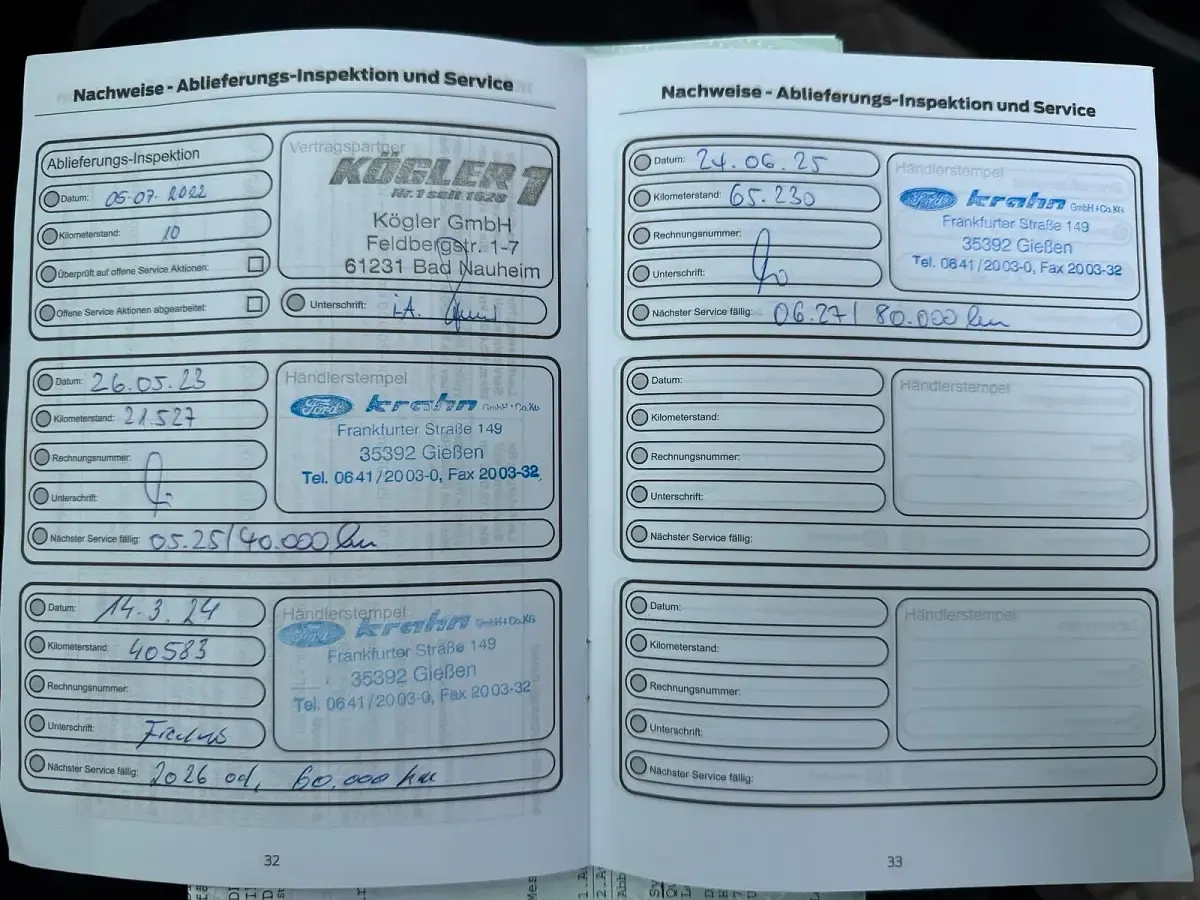 Nachweise - Ablieferungs-Inspektion und Service
Ablieferungs-Inspektion
Datum: 05.07.2022
Kilometerstand: 10
Überprüft auf offene Service Aktionen:
Offene Service Aktionen abgearbeitet:
Vertragspartner
KÖGLER 1
Nr. 1 seit 1928
Kögler GmbH
Feldbergstr. 1-7
61231 Bad Nauheim
Unterschrift: i.A.
Datum: 26.05.23
Kilometerstand: 21.527
Rechnungsnummer:
Unterschrift:
Händlerstempel
Ford krahn GmbH+Co.KG
Frankfurter Straße 149
35392 Gießen
Tel. 0641/2003-0, Fax 2003-32
Nächster Service fällig: 05.25/40.000 km
Datum: 14.3.24
Kilometerstand: 40583
Rechnungsnummer:
Unterschrift:
Händlerstempel
Ford krahn GmbH+Co.KG
Frankfurter Straße 149
35392 Gießen
Tel. 0641/2003-0, Fax 2003-32
Nächster Service fällig: 2026 od. 60.000 km
32
Nachweise - Ablieferungs-Inspektion und Service
Datum: 24.06.25
Kilometerstand: 65.230
Rechnungsnummer:
Unterschrift:
Händlerstempel
Ford krahn GmbH+Co.KG
Frankfurter Straße 149
35392 Gießen
Tel. 0641/2003-0, Fax 2003-32
Nächster Service fällig: 06.27/ 80.000 km
Datum:
Kilometerstand:
Rechnungsnummer:
Unterschrift:
Händlerstempel
Nächster Service fällig:
Datum:
Kilometerstand:
Rechnungsnummer:
Unterschrift:
Händlerstempel
Nächster Service fällig:
33